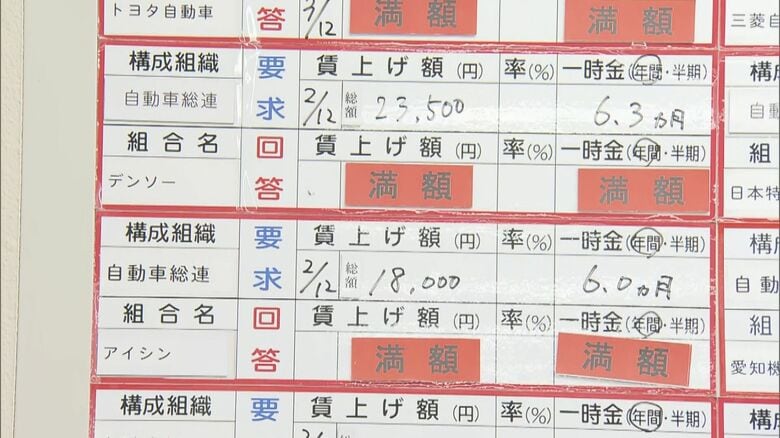 トヨタ自動車 答 3/12 満額 満額 三菱自
構成組織 要 賃上げ額(円) 率(%) 一時金(年間・半期) 構
自動車総連 求 2/12 総額 23,500 6.3ヵ月 自動
組合名 回 賃上げ額(円) 率(%) 一時金(年間・半期) 組
デンソー 答 満額 満額 日本特
構成組織 要 賃上げ額(円) 率(%) 一時金(年間・半期) 構
自動車総連 求 2/12 総額 18,000 6.0ヵ月 自動
組合名 回 賃上げ額(円) 率(%) 一時金(年間・半期) 組
アイシン 答 満額 満額 愛知機
構成組織 要 賃上げ額(円) 率(%) 一時金(年間・半期) 構